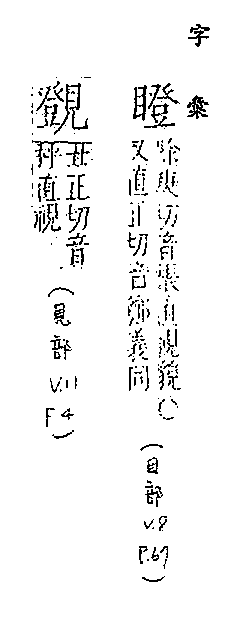 字彙
瞪
庚切音直視貌〇
又直正切音鄭義同
(目部 V.8 P.67)
覴
丑正切音
秤直視
(見部 V.11 P4)